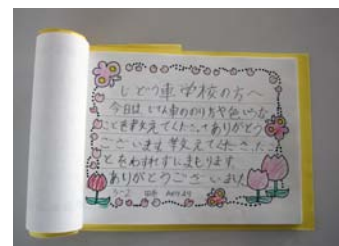 じどう車学校の方へ
今日は、じてん車ののり方や色いろな
ことを教えてくださってありがとう
ございます。教えてくださったこ
とをわすれずにまもります。
ありがとうございました。
3-2